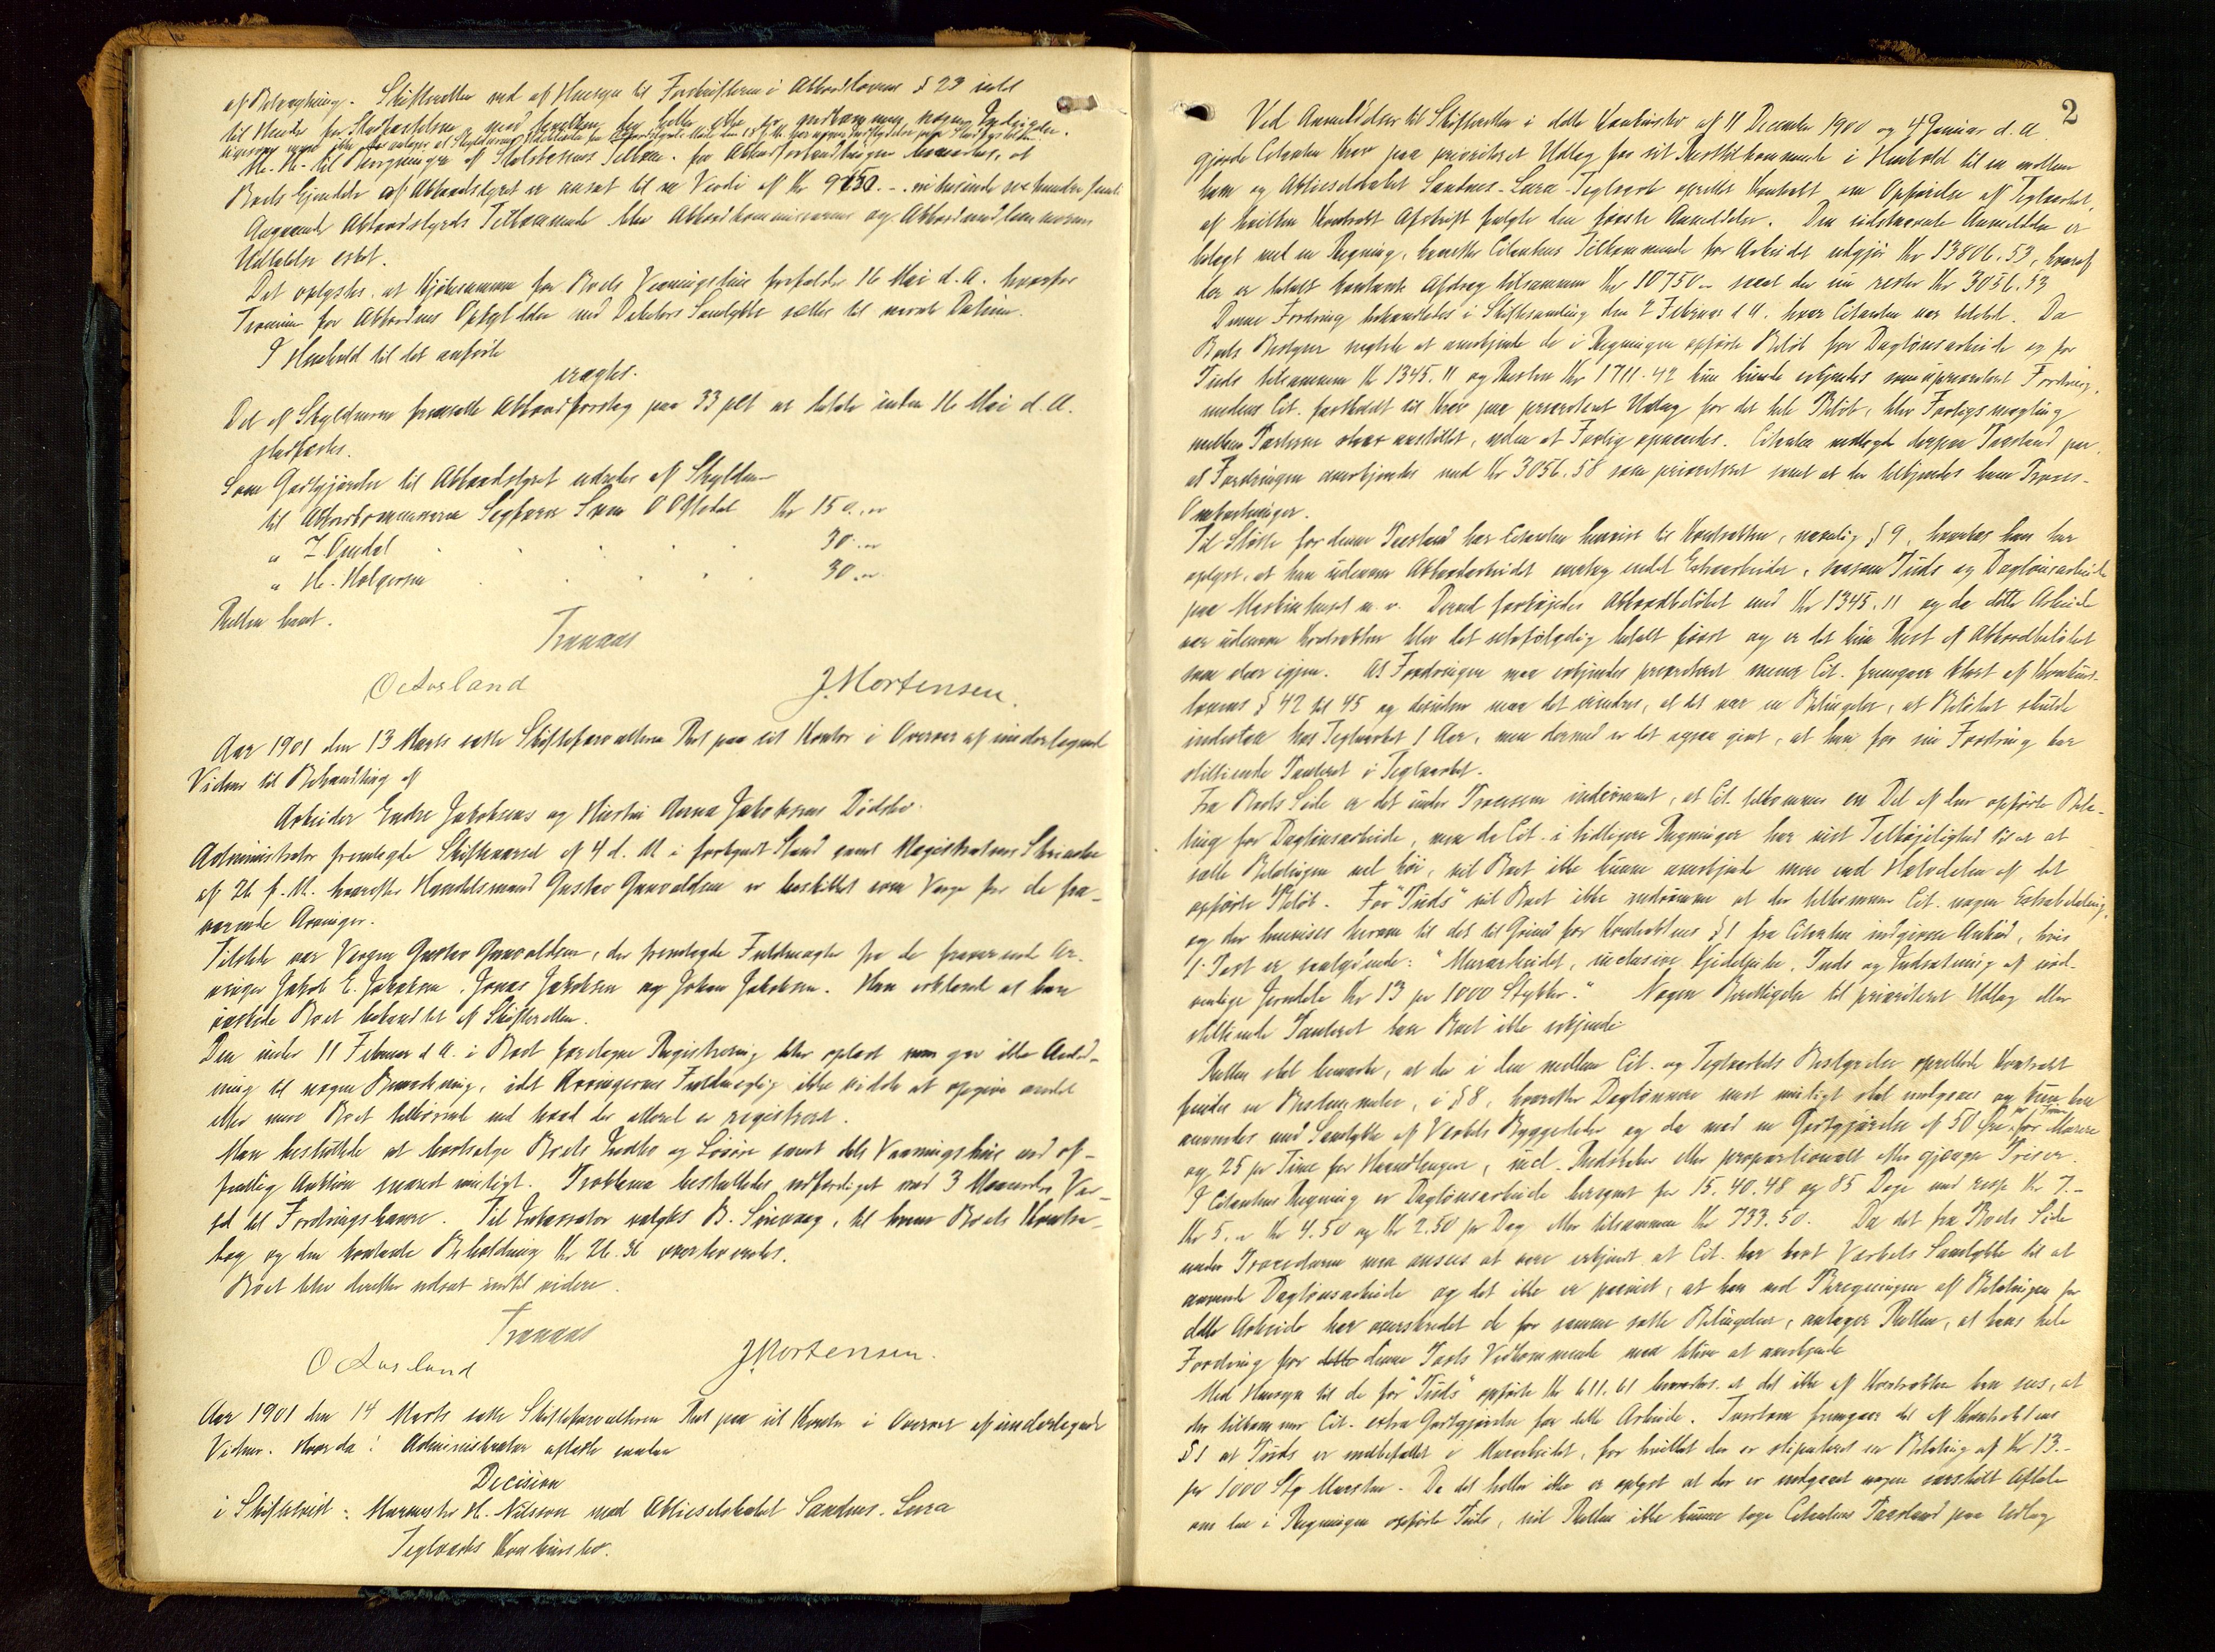 af Betragtning. Skifteretten med af Hensyn til Forskrifterne i Akkordlovens § 23 intet
til Hinder for Stadfæstelsen mod hvilken der heller ikke er indkommen nogen Indsigelse.
M. H. til Beregningen af Statskassens Tilkom. for Akkordforhandlingen bemærkes, at
Boets Eiendele af Akkordstyret er ansat til en Værdi af Kr 9650.-
Angaaende Akkordstyrets Tilkommende blev Akkordkommissærens og Akkordmedlemmernes
Udtalelse æsket.
Det oplystes, at Kjøbesummen for Boets Vaaningshus forfalder 16 Mai d. A. hvorfor
Termin for Akkordens Opfyldelse med Debitors Samtykke sættes til nævnte Datum.
I Henhold til det anførte
eragtes.
Det af Skyldneren fremsatte Akkordforslag paa 33 pCt at betale inden 16 Mai d. A.
stadfæstes.
Som Godtgjørelse til Akkordstyret udredes af Skyldneren
til Akkordkommissæren Sagfører Sven O Oftedal Kr 150.-
" T. Omdal 30.-
" M. Holgersen 30.-
Retten hævet.
Tranaas
O Aasland J. Mortensen.
Aar 1901 den 13 Marts satte Skifteforvalteren Ret paa sit Kontor i Overvær af underlagende
Vidner til Behandling af
Arbeider Endre Jakobsens og Hustru Anna Jakobsens Dødsbo.
Administrator fremlagde Skiftevarsel af 4 d. M i forkyndt Stand samt Magistratens Skrivelse
af 26 f. M. hvorefter Handelsmand Gustav Gunvaldsen er beskikket som Værge for de fra-
værende Arvinger.
Tilstede var Værgen Gustav Gunvaldsen, der fremlagde Fuldmagter fra de fraværende Ar-
vinger Jakob E. Jakobsen, Jonas Jakobsen og Johan Jakobsen. Han erklærede at han
ønskede Boet behandlet af Skifteretten.
Den under 11 Februar d A. i Boet foretagne Registrering blev oplæst som gav ikke Anled-
ning til nogen Bemærkning, idet Arvingernes Fuldmægtig ikke vidste at opgive andet
eller mere Boet tilhørende end hvad der allerede er registreret.
Man besluttede at bortsælge Boets Indbo og Løsøre samt dets Vaaningshus ved of-
fentlig Auktion snarest muligt. Proklama besluttedes udfærdiget med 3 Maaneders Var-
sel til Fordringshavere. Til Inkassator valgtes B. Sinnaag, til hvem Boets Kontra-
bog og den kontante Beholdning Kr 26.36 overleveredes.
Boet blev derefter udsat indtil videre.
Tranaas
O Aasland J Mortensen.
Aar 1901 den 14 Marts satte Skifteforvalteren Ret paa sit Kontor i Overvær af underlagende
Vidner. Hvor da: Administrator afsagde saadan
Decision
i Skiftetvist: Murmester H. Nilsson mod Aktieselskabet Sandnes-Lura
Teglværks Konkursbo.
2
Ved Anmeldelser til Skifteretten i dette Konkursbo af 11 December 1900 og 4 Januar d. A.
gjorde Citanten Krav paa prioriteret Udlæg for sit Resttilkommende i Henhold til en mellem
ham og Aktieselskabet Sandnes-Lura-Teglværk oprettet Kontrakt om Opførelse af Teglværket,
af hvilken Kontrakt Afskrift fulgte den første Anmeldelse. Den sidstnævnte Anmeldelse er
bilagt med en Regning, hvorefter Citantens Tilkommende for Arbeidet udgjør Kr 13806.53, hvoraf
der er betalt kontante Afdrag tilsammen Kr 10750.- saa at der nu rester Kr 3056.53
Denne Fordring behandledes i Skiftesamling den 2 Februar d A. hvor Citanten var tilstede. Da
Boets Bestyrer negtede at anerkjende de i Regningen opførte Beløb for Daglønsarbeide og for
Puds tilsammen Kr 1345.11 og Resten Kr 1711.42 kun kunde erkjendes som uprioriteret Fordring,
medens Cit. fastholdt sit Krav paa prioriteret Udlæg for det hele Beløb, blev Forligsmægling
mellem Parterne anstillet, uden at Forlig opnaaedes. Citanten nedlagde derpaa Paastand paa,
at Fordringen anerkjendes med Kr 3056.58 som prioriteret samt at der tilkjendes ham Proces-
Omkostninger.
Til Støtte for denne Paastand har Citanten henvist til Kontrakten, navnlig § 9, hvorhos han har
oplyst, at han udenom Akkordarbeidet overtog endel Extraarbeider, saasom Puds og Daglønsarbeide
paa Maskinhuset m. v. Derved forhøiedes Akkordbeløbet med Kr 1345.11 og da dette Arbeide
var udenom Kontrakten blev det selvfølgelig betalt først og er det kun Rest af Akkordbeløbet
som staar igjen. At Fordringen maa erkjendes prioriteret mener Cit. fremgaar klart af Konkurs-
lovens § 42 til 45 og desuden maa det erindres, at det var en Betingelse, at Beløbet skulde
indestaa hos Teglværket 1 Aar, men dermed er det ogsaa givet, at han for sin Fordring har
stiltiende Panteret i Teglværket.
Fra Boets Side er det under Processen indrømmet, at Cit. tilkommer en Del af den opførte Beta-
ling for Daglønsarbeide, men da Cit. i tidligere Regninger har vist Tilbøielighed til at
sætte Betalingen vel høi, vil Boet ikke kunne anerkjende mere end Halvdelen af det
opførte Beløb. For "Puds" vil Boet ikke indrømme at der tilkommer Cit. nogen Extrabetaling,
og der henvises herom til det til Grund for Kontraktens § 1 fra Citanten indgivne Anbud, hvis
1. Post er saalydende: "Murarbeidet, inclusive Kjedelpibe, Puds og Indsætning af nød-
vendige Jerndele Kr 13 pr 1000 Stykker." Nogen Berettigelse til prioriteret Udlæg eller
stiltiende Panteret kan Boet ikke erkjende.
Retten skal bemærke, at der i den mellem Cit. og Teglværkets Bestyrelse oprettede Kontrakt
findes en Bestemmelse, i § 8, hvorefter Daglønnen mest muligt skal undgaaes og kun kan
anvendes med Samtykke af Værkets Byggeleder og da med en Godtgjørelse af 50 Øre pr Time for Murere
og 25 pr Time for Haandlangere, incl. Redskaber eller proportionalt efter gjængse Priser.
I Citantens Regning er Daglønsarbeide beregnet for 15. 40. 48 og 85 Dage med resp. Kr 7.-
Kr 5.- Kr 4.50 og Kr 2.50 pr Dag eller tilsammen Kr 733.50. Da det fra Boets Side
under Proceduren maa ansees at være erkjendt at Cit. har havt Værkets Samtykke til at
anvende Daglønsarbeide og det ikke er paavist, at han ved Beregningen af Betalingen for
dette Arbeide har overskredet de for samme satte Betingelser, antager Retten, at hans hele
Fordring for denne Posts Vedkommende maa blive at anerkjende
Med Hensyn til de for "Puds" opførte Kr 611.61 bemærkes, at det ikke af Kontrakten kan sees, at
der tilkommer Cit. extra Godtgjørelse for dette Arbeide. Tvertom fremgaar det af Kontraktens
§ 1 at Puds er indbefattet i Murarbeidet, for hvilket der er stipuleret en Betaling af Kr 13.-
pr 1000 Stk Mursten. Da det heller ikke er oplyst at der er indgaaet nogen særskilt Aftale
om den i Regningen opførte Puds, vil Retten ikke kunne tage Citantens Paastand paa Udlæg